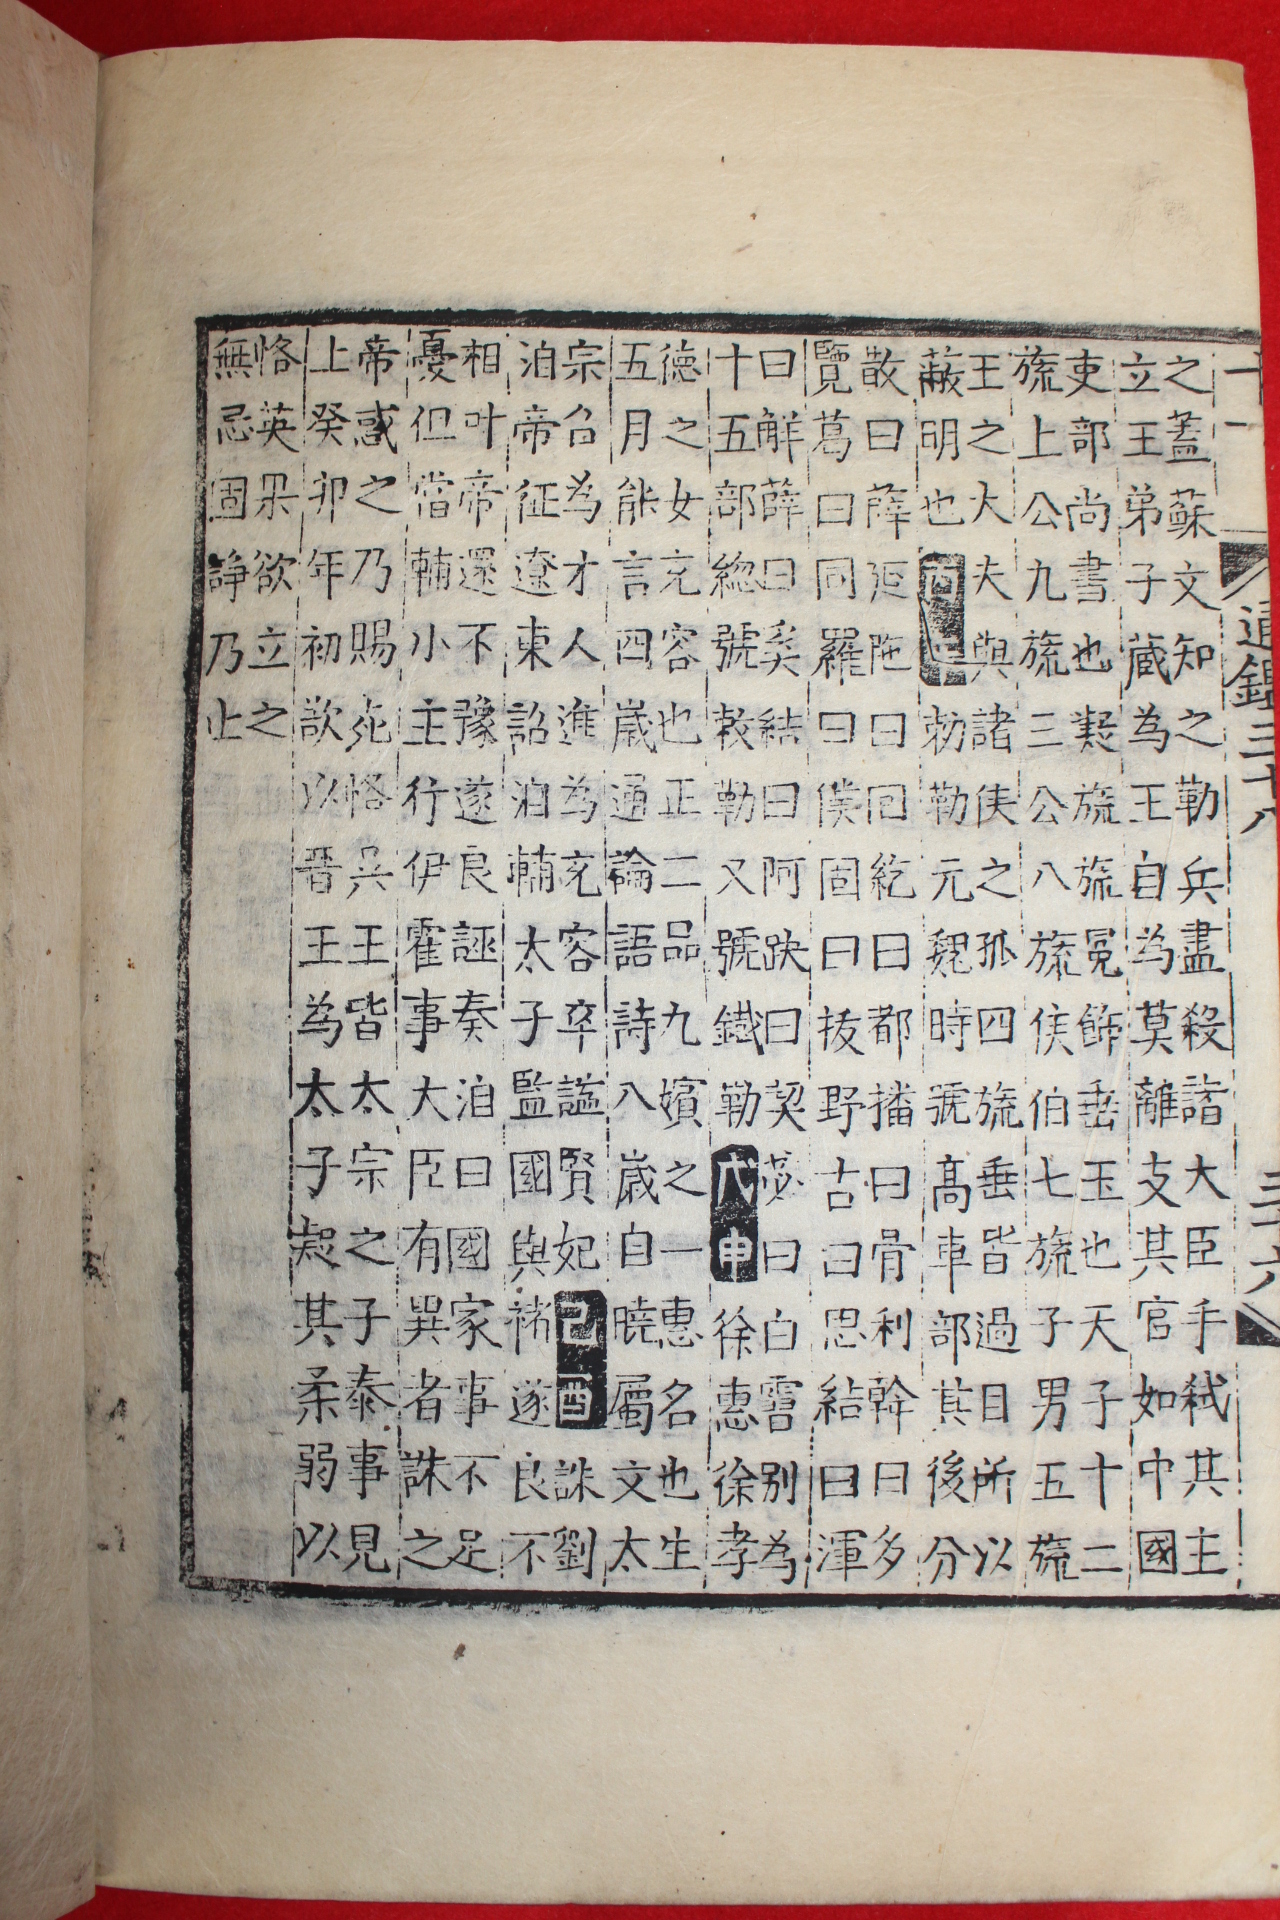 通鑑三十八 三十六
之蓋蘇文知之勒兵盡殺諸大臣手弑其主
立王弟子藏為王自為莫離支其官如中國
吏部尚書也凝旒旒冕飾垂玉也天子十二
旒上公九旒三公八旒侯伯七旒子男五旒
王之大夫與諸侯之孤四旒垂皆過目所以
蔽明也丙勑勒元魏時號高車部其後分
散曰薛延陁曰回紇曰都播曰骨利幹曰多
覽葛曰同羅曰僕固曰拔野古曰思結曰渾
曰斛薛曰奚結曰阿跌曰契苾曰白霫别為
十五部緫號敕勒又號鐵勒戊申徐惠徐孝
德之女充容也正二品九嬪之一惠名也生
五月能言四歲通論語詩八歲自曉屬文太
宗召為才人進為充容卒謚賢妃己酉誅劉
洎帝征遼東詔洎輔太子監國與褚遂良不
相叶帝還不豫遂良誣奏洎曰國家事不足
憂但當輔小主行伊霍事大臣有異者誅之
帝惑之乃賜死恪吳王皆太宗之子泰事見
上癸卯年初欲以晋王為太子疑其柔弱以
恪英果欲立之
無忌固諍乃止